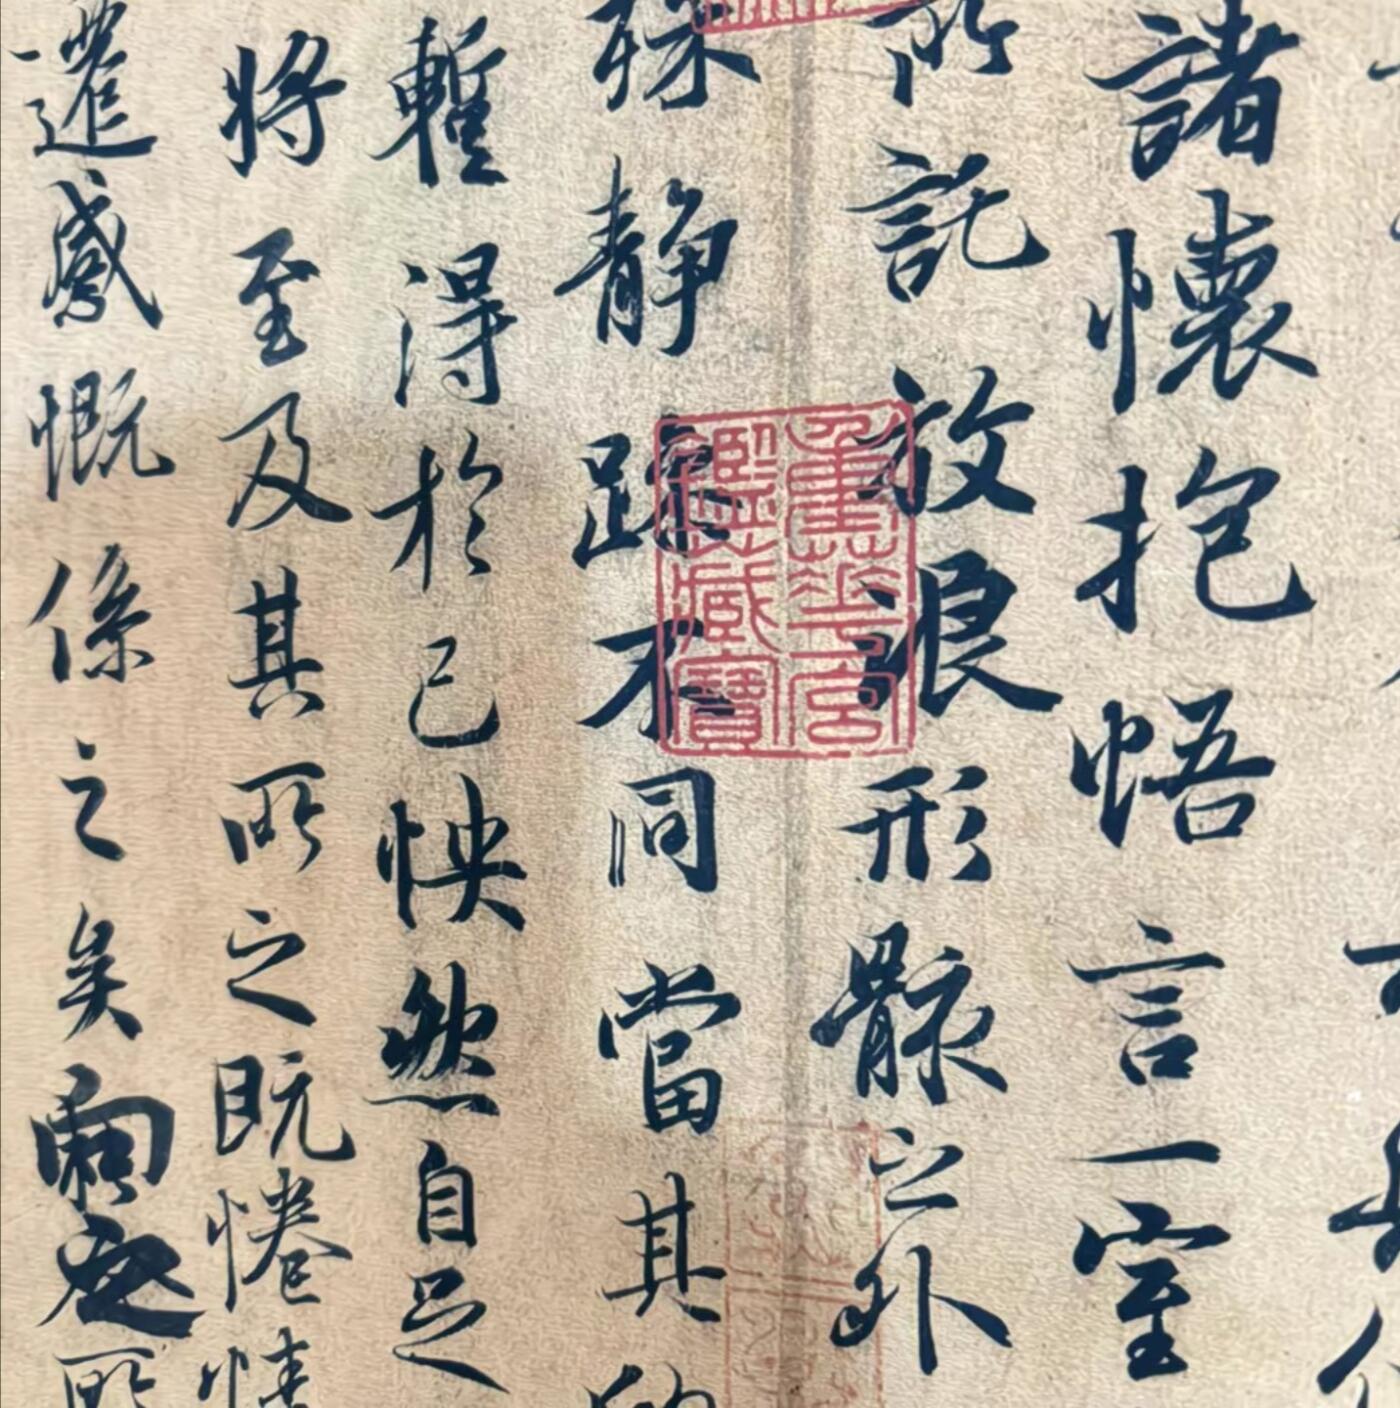 諸懷抱悟言一室
所託放浪形骸之外
殊静躁不同當其
蹔得於己怏然自足
將至及其所之既惓情
遷感慨係之矣向之所
重華宮
鑑藏寶